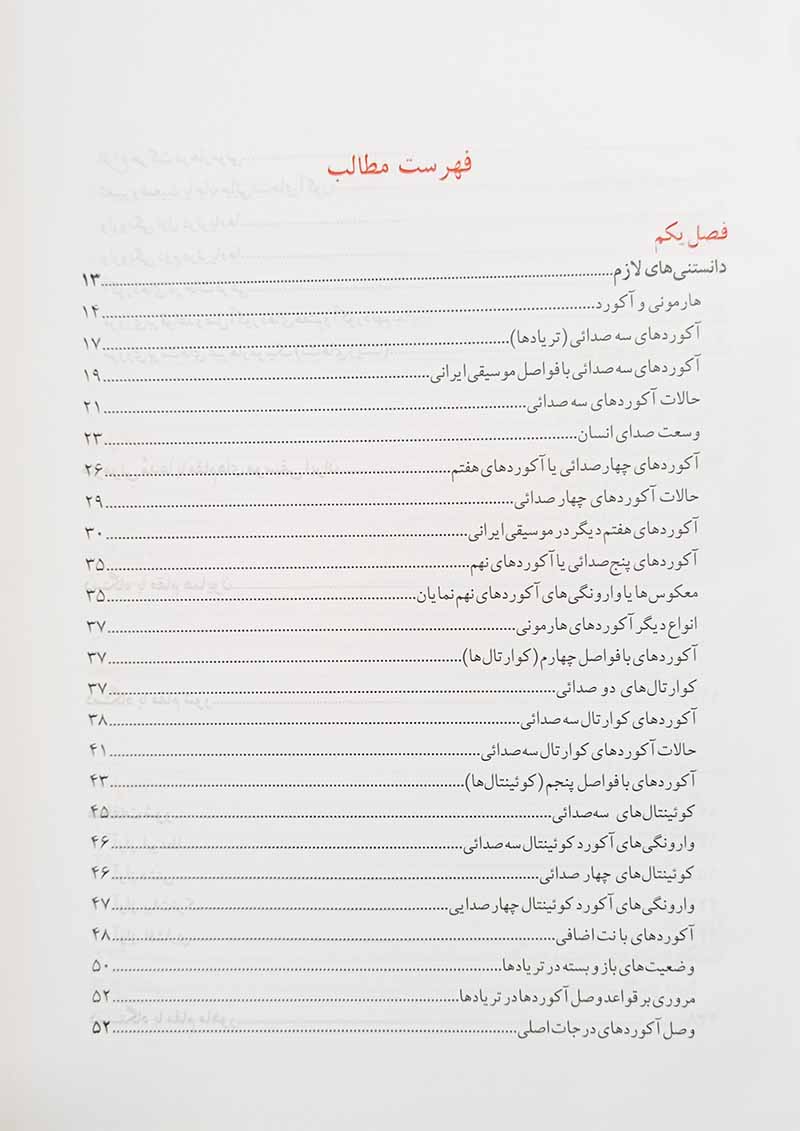 فهرست مطالب
فصل یکم
دانستنی‌های لازم...۱۳
هارمونی و آکورد...۱۴
آکوردهای سه صدائی (تریادها)...۱۷
آکوردهای سه صدائی با فواصل موسیقی ایرانی...۱۹
حالات آکوردهای سه صدائی...۲۱
وسعت صدای انسان...۲۳
آکوردهای چهار صدائی یا آکوردهای هفتم...۲۶
حالات آکوردهای چهار صدائی...۲۹
آکوردهای هفتم دیگر در موسیقی ایرانی...۳۰
آکوردهای پنج صدائی یا آکوردهای نهم...۳۵
معکوس‌ها یا وارونگی‌های آکوردهای نهم نمایان...۳۵
انواع دیگر آکوردهای هارمونی...۳۷
آکوردهای با فواصل چهارم (کوارتال‌ها)...۳۷
کوارتال‌های دو صدائی...۳۷
آکوردهای کوارتال سه صدائی...۳۸
حالات آکوردهای کوارتال سه‌صدائی...۴۱
آکوردهای با فواصل پنجم (کوئینتال‌ها)...۴۳
کوئینتال‌های سه‌صدائی...۴۵
وارونگی‌های آکورد کوئینتال سه‌صدائی...۴۶
کوئینتال‌های چهار صدائی...۴۶
وارونگی‌های آکورد کوئینتال چهار صدایی...۴۷
آکوردهای با نت اضافی...۴۸
وضعیت‌های باز و بسته در تریادها...۵۰
مروری بر قواعد وصل آکوردها در تریادها...۵۲
وصل آکوردهای درجات اصلی...۵۲